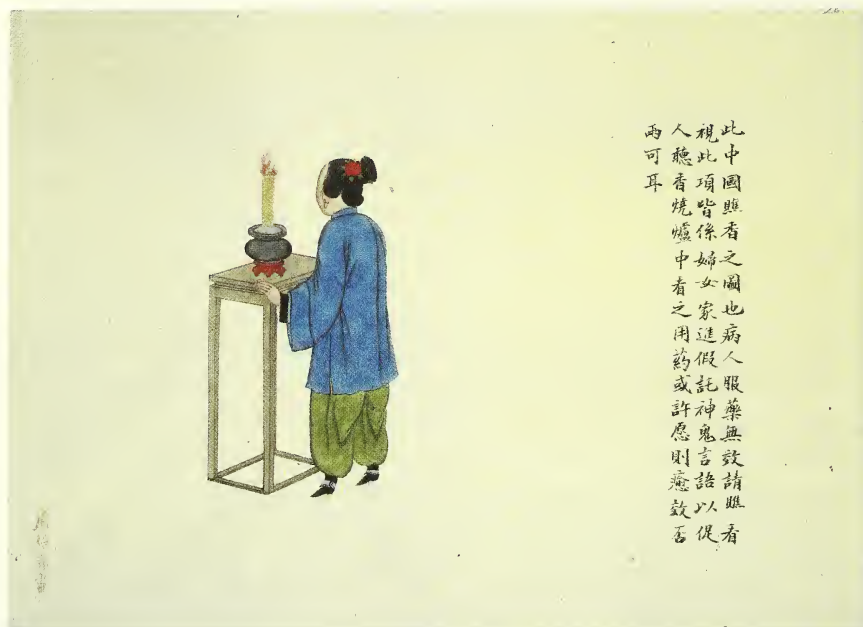 此中國瞧香之圖也病人服藥無效請瞧看
視此項皆係婦女家進假託神鬼言語以促
人聽香燒爐中看之用药或許愿則癒效否
兩可耳
周培春畫